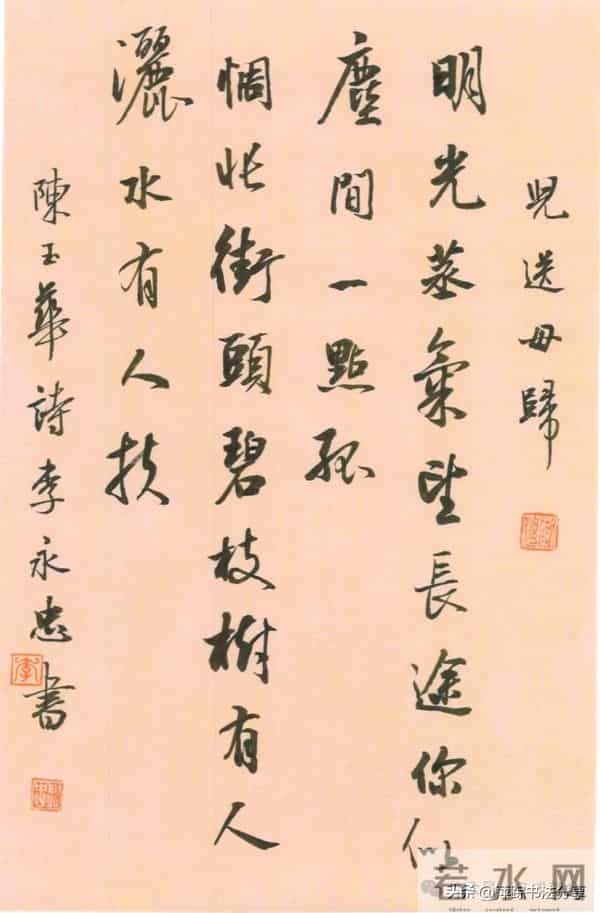 兒送母歸
明光蒸氣望長途你似
塵間一點孤
惆悵街頭碧枝樹有人
灑水有人扶
陳玉華詩李永忠書
李
若水网
头条 书法分享